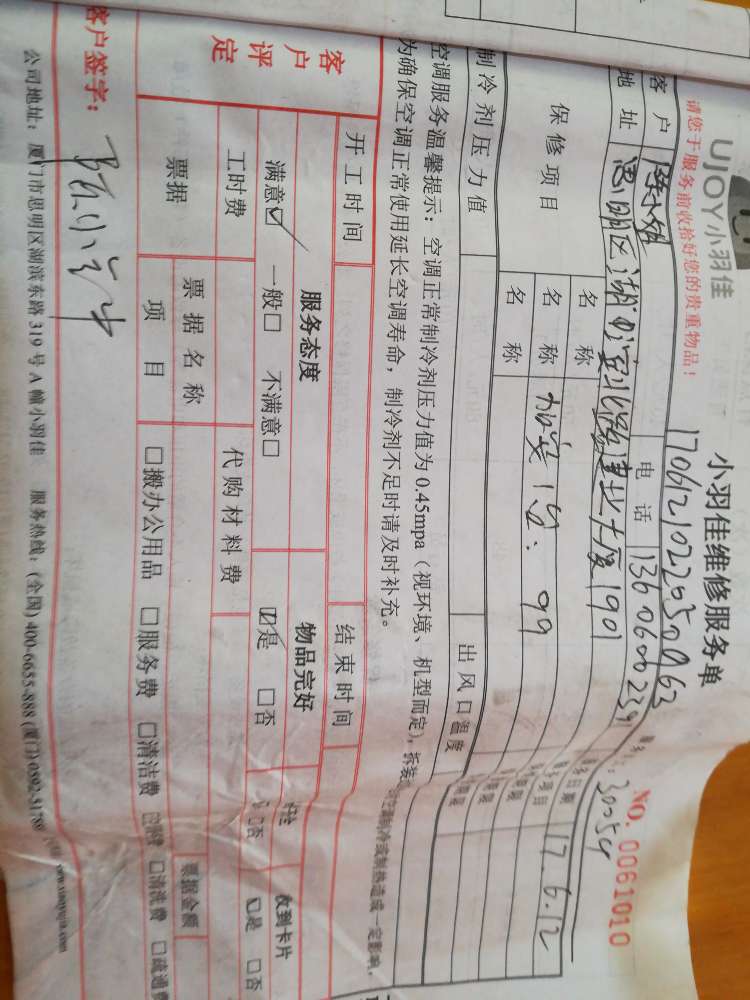 UJOY小羽佳
小羽佳维修服务单
NO. 0061010
请您于服务前收拾好您的贵重物品!
客户
电话 13606002391
30054
地址 思明区湖滨北路建业大厦1901
保修项目 名称
名称 加安1台: 99
名称
17.6.12
制冷剂压力值 出风口温度
空调服务温馨提示:空调正常制冷剂压力值为0.45mpa(视环境、机型而定),拆装
为确保空调正常使用延长空调寿命,制冷剂不足时请及时补充。
客户评定
开工时间 结束时间
服务态度 物品完好 收到卡片
满意☑ 一般□ 不满意□ ☑是 □否 □否 ☑是 □否
工时费 代购材料费
票据 票据名称 票据金额
项目 □搬办公用品 □服务费 □清洁费 □清洗费 □疏通费
客户签字:
公司地址:厦门市思明区湖滨东路319号A幢小羽佳 服务热线:(全国) 400-6655-888 (厦门) 0592-5178